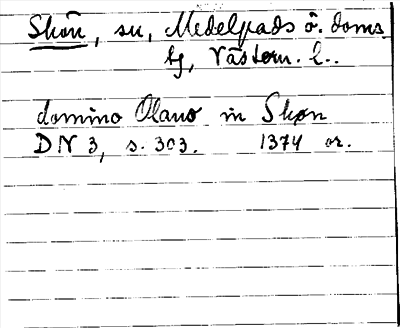 Skön, sn, Medelpads ö. doms.
tg, Västern. l..
domino Olauo in Skøn
DN 3, s. 303. 1374 or.